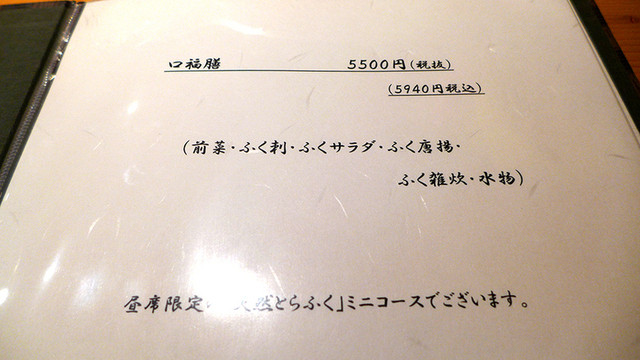 口福膳 5500円(税抜)
(5940円税込)
(前菜・ふく刺・ふくサラダ・ふく唐揚・
ふく雑炊・水物)
昼席限定 然とらふく」ミニコースでございます。